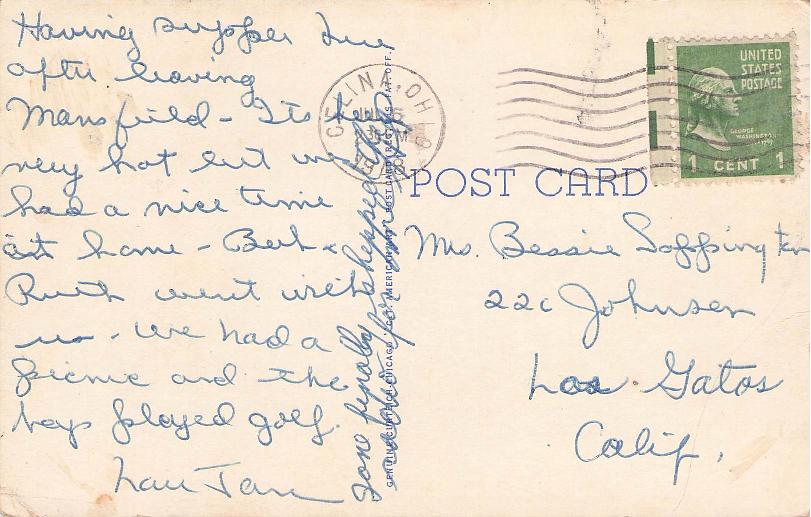 Having supper here
after leaving
Mansfield - Its been
very hot but we
had a nice time
at home - Bert &
Ruth went with
us - we had a
picnic and the
boys played golf.
Jane finally shipped
GENUINE CURTEICH-CHICAGO "C.T. AMERICAN ART" POST CARD (REG. U.S. PAT. OFF.)
CELINA, OHIO
UNITED
STATES
POSTAGE
GEORGE
WASHINGTON
1 CENT 1
POST CARD
Mrs. Bessie Sappington
22c Johnson
Los Gatos
Calif.